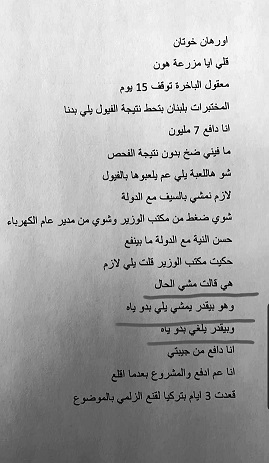 اورهان خوتان
قلي ايا مزرعة هون
معقول الباخرة توقف 15 يوم
المختبرات بلبنان بتحط نتيجة الفيول يلي بدنا
انا دافع 7 مليون
ما فيني ضخ بدون نتيجة الفحص
شو هاللعبة يلي عم يلعبوها بالفيول
لازم نمشي بالسيف مع الدولة
شوي ضغط من مكتب الوزير وشوي من مدير عام الكهرباء
حسن النية مع الدولة ما بينفع
حكيت مكتب الوزير قلت يلي لازم
هي قالت مشي الحال
وهو بيقدر يمشي يلي بدو ياه
وبيقدر يلغي بدو ياه
انا دافع من جيبتي
انا عم ادفع والمشروع بعدما اقلع
قعدت 3 ايام بتركيا لقنع الزلمي بالموضوع